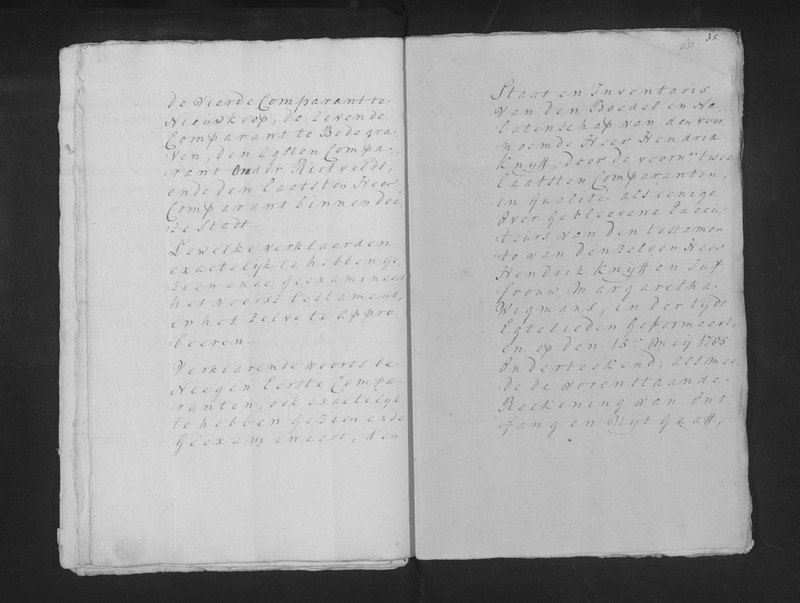 de Vierde Comparant te
Nieuwkoop, de Zevende
Comparant te Bodegra-
ven, den Agsten Compa-
rant onder Rietveldt,
ende den laatsten Heer
Comparant binnen dee-
ze Stadt.
Dewelke verklaerden
exactelijk te hebben ge-
zien ende geexamineert
het voorsz. testament,
en het zelve te appro-
beeren.
Verklarende voorts de
Neegen Eerste Compa-
ranten, ook exactelijk
te hebben gezien ende
geexamineert, den
35.
Staat en Inventaris
van den Boedel en Na-
latenschap van den voor
noemde Heer Hendrik
Knijff, door de voorn. twee
laatsten Comparanten,
in qualité als eenige
overgebleevene Execu-
teurs van den testamen-
te van den zelven Heer
Hendrik Knijff en Juf-
frouw Margaretha
Wigmans, in der tydt
Egtelieden geformeert,
en op den 13e. Meij 1785
onderteekend, als mee-
de de vorenstaande
Reekening van Ont-
fang en Uijtgaaff,